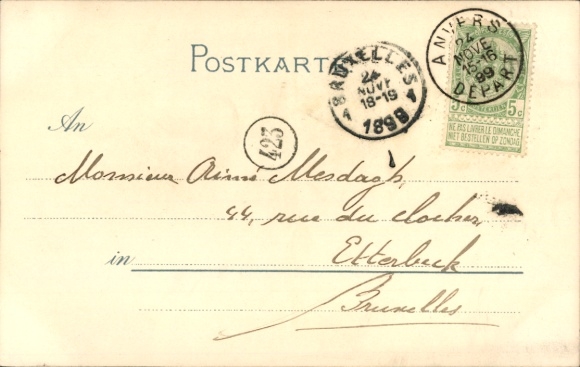 POSTKARTE
BRUXELLES
24
NOVE
18-19
1899
1 1
ANVERS
24
NOVE
15-16
99
DÉPART
5c 5c
NE PAS LIVRER LE DIMANCHE
NIET BESTELLEN OP ZONDAG
An
423
Monsieur Aimé Mesdagh,
44, rue du clocher,
in Etterbeek
Bruxelles